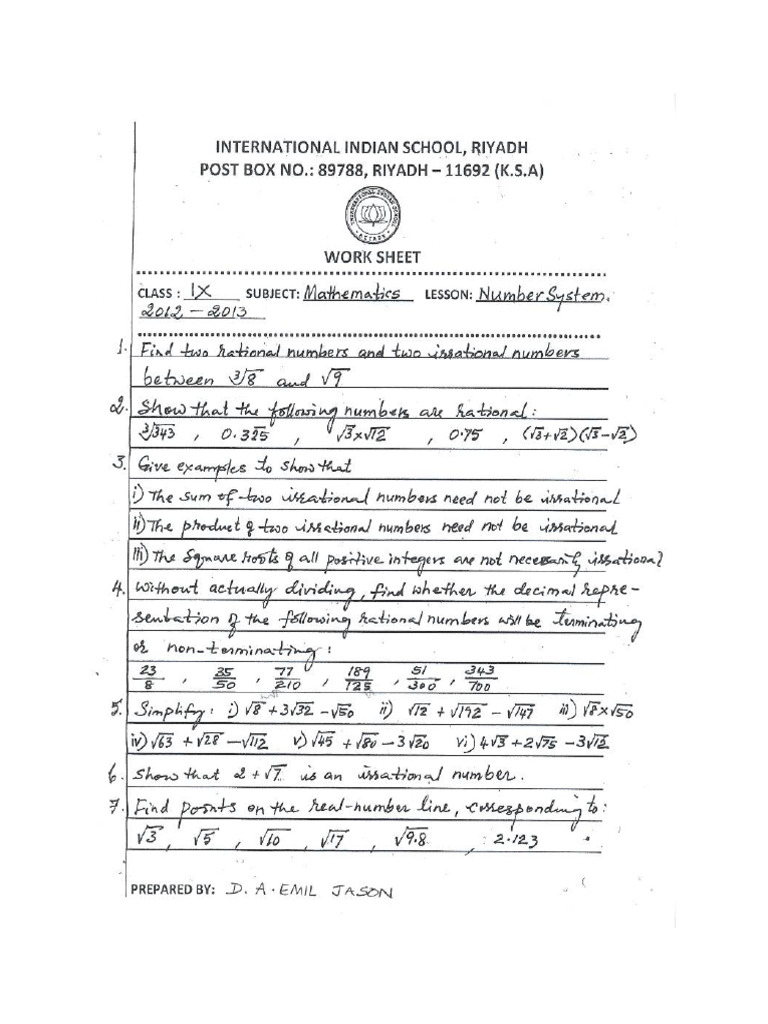 INTERNATIONAL INDIAN SCHOOL, RIYADH
POST BOX NO.: 89788, RIYADH – 11692 (K.S.A)
WORK SHEET
CLASS : IX SUBJECT: Mathematics LESSON: Number System.
2012 – 2013
1. Find two rational numbers and two irrational numbers
between ∛8 and √9
2. Show that the following numbers are rational:
∛343 , 0.325 , √3×√12 , 0.75 , (√3+√2)(√3–√2)
3. Give examples to show that
i) The sum of two irrational numbers need not be irrational
ii) The product of two irrational numbers need not be irrational
iii) The square roots of all positive integers are not necessarily irrational
4. Without actually dividing, find whether the decimal repre-
sentation of the following rational numbers will be terminating
or non-terminating :
23/8 , 35/50 , 77/210 , 189/125 , 51/300 , 343/700
5. Simplify: i) √8 + 3√32 – √50 ii) √12 + √192 – √147 iii) √8×√50
iv) √63 + √28 – √112 v) √45 + √80 – 3√20 vi) 4√3 + 2√75 – 3√12
6. Show that 2 + √7 is an irrational number.
7. Find points on the real-number line, corresponding to:
√3 , √5 , √10 , √17 , √9.8 , 2.123
PREPARED BY: D. A. EMIL JASON